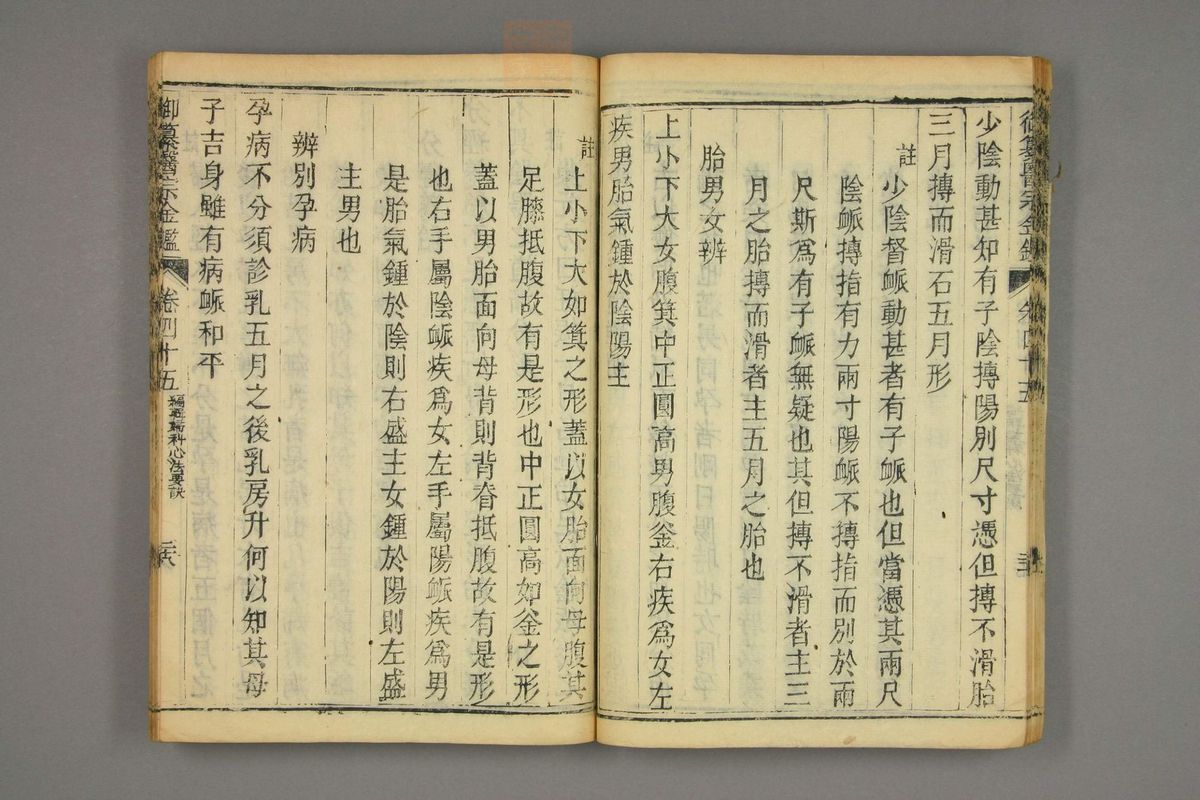 御纂醫宗金鑑 卷四十五
少陰動甚知有子陰摶陽別尺寸憑但摶不滑胎
三月摶而滑石五月形
註
少陰督𧖴動甚者有子𧖴也但當憑其兩尺
陰𧖴摶指有力兩寸陽𧖴不摶指而別於兩
尺斯為有子𧖴無疑也其但摶不滑者主三
月之胎摶而滑者主五月之胎也
胎男女辨
上小下大女腹箕中正圓高男腹釜右疾為女左
疾男胎氣鍾於陰陽主
註
上小下大如箕之形蓋以女胎面向母腹其
足膝抵腹故有是形也中正圓高如釜之形
蓋以男胎面向母背則背脊抵腹故有是形
也右手屬陰𧖴疾為女左手屬陽𧖴疾為男
是胎氣鍾於陰則右盛主女鍾於陽則左盛
主男也
辨別孕病
孕病不分須診乳五月之後乳房升何以知其母
子吉身雖有病𧖴和平
御纂醫宗金鑑 卷四十五 編輯婦科心法要訣